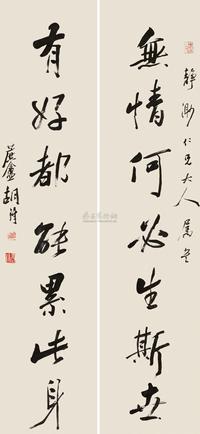 靜淵仁兄大人屬書
無情何必生斯世
有好都能累此身